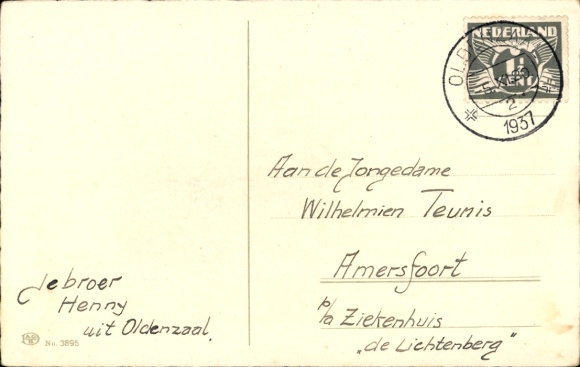 NEDERLAND
1½
CNT
1937
Aan de Jongedame
Wilhelmien Teunis
Amersfoort
p/a Ziekenhuis
„de Lichtenberg"
Je broer
Henny
uit Oldenzaal.
No. 3895